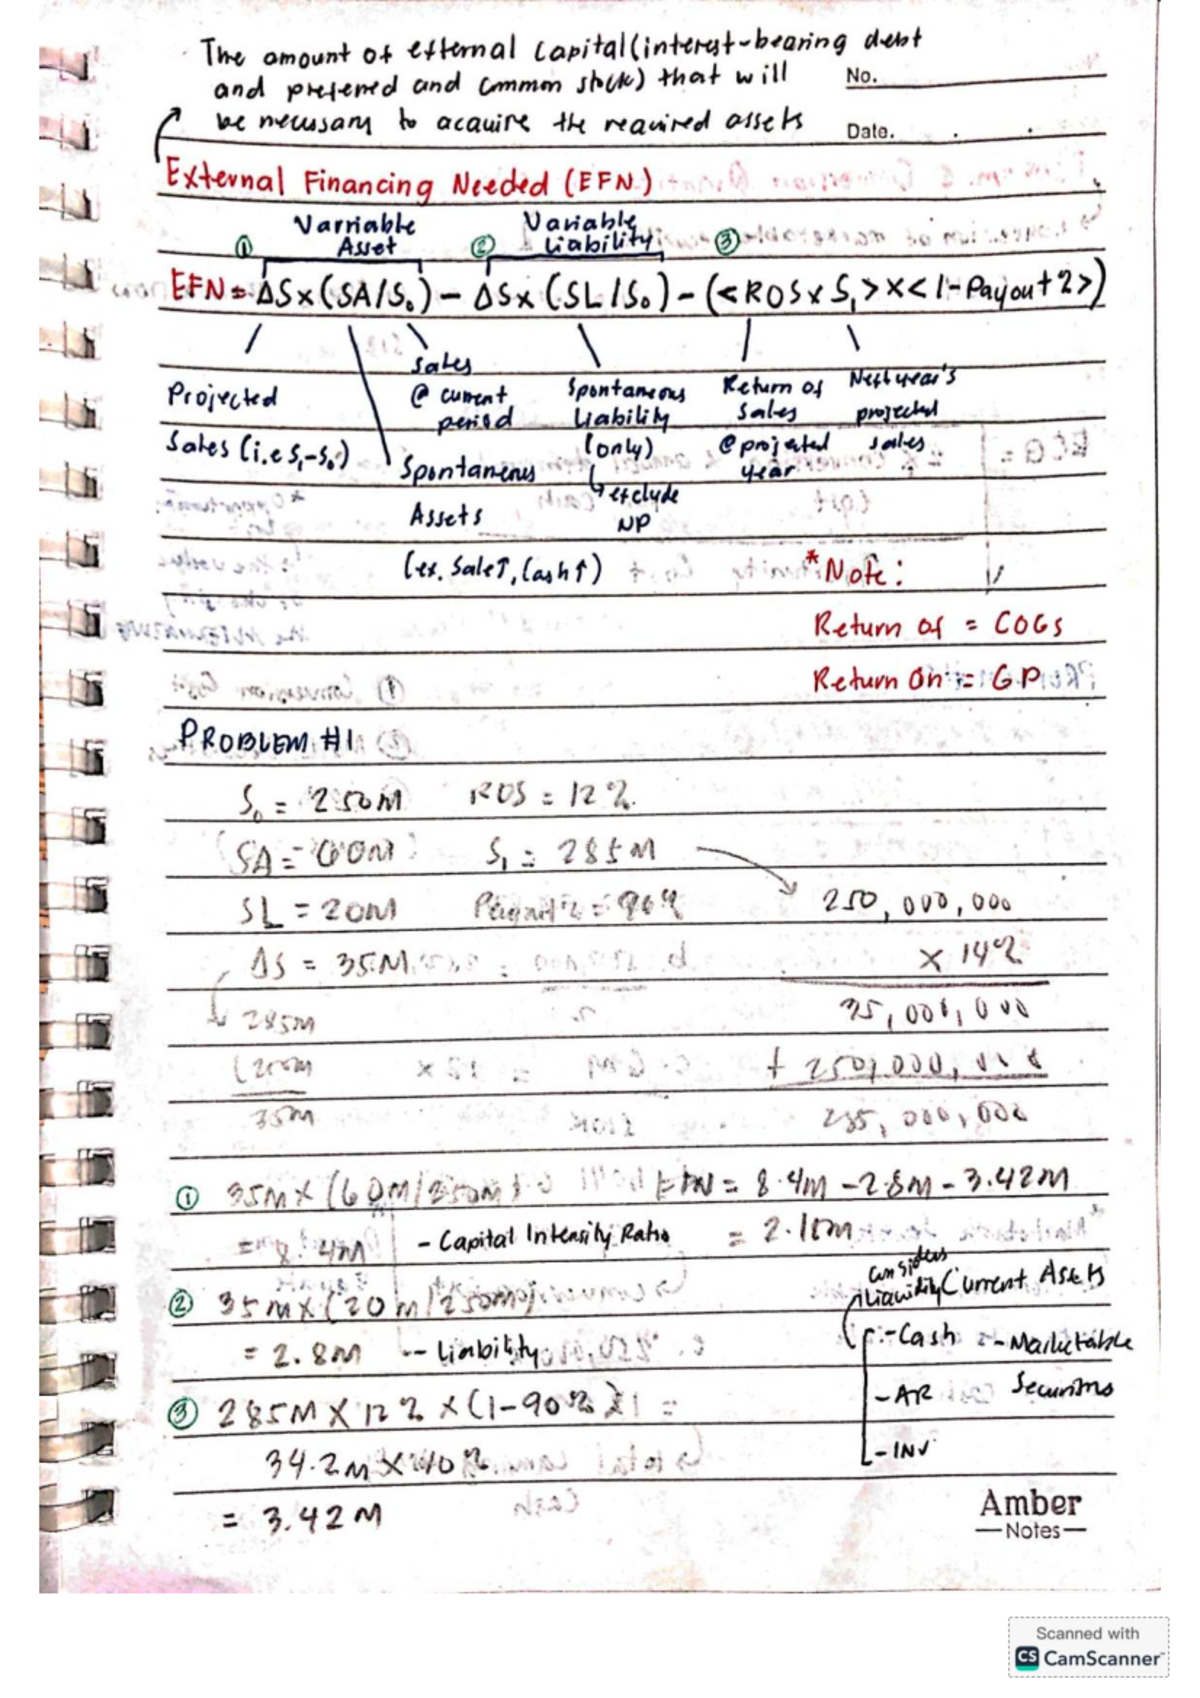 The amount of external capital (interest-bearing debt
and prefered and common stock) that will
be necessary to acquire the required assets
No.
Date.
External Financing Needed (EFN)
Varriable Asset
Variable Liability
① ② ③
EFN = ΔS x (SA/S₀) - ΔS x (SL/S₀) - (<ROS x S₁> x <1-Payout %>)
Projected
Sales (i.e S₁-S₀)
Sales
@ current
period
Spontaneous
Assets
(ex. Sale↑, Cash↑)
Spontaneous
Liability
(only)
↳ exclude
NP
Return of
Sales
@ projected
year
Next year's
projected
sales
*Note:
Return of = COGS
Return on = GP
PROBLEM #1
S₀ = 250M ROS = 12%
SA = 60M S₁ = 285M
SL = 20M Payout % = 90%
250,000,000
ΔS = 35M
x 14%
285M
35,000,000
(250M
+ 250,000,000
35M
285,000,000
① 35M x (60M/250M)
EFN = 8.4M - 2.8M - 3.42M
= 8.4M - Capital Intensity Ratio
= 2.18M
② 35M x (20M/250M)
= 2.8M -- Liability
considers
liquidity Current Assets
- Cash - Marketable
Securities
- AR
- INV
③ 285M x 12% x (1-90%) =
34.2M x 10%
= 3.42M
Amber
—Notes—
Scanned with
CS CamScanner